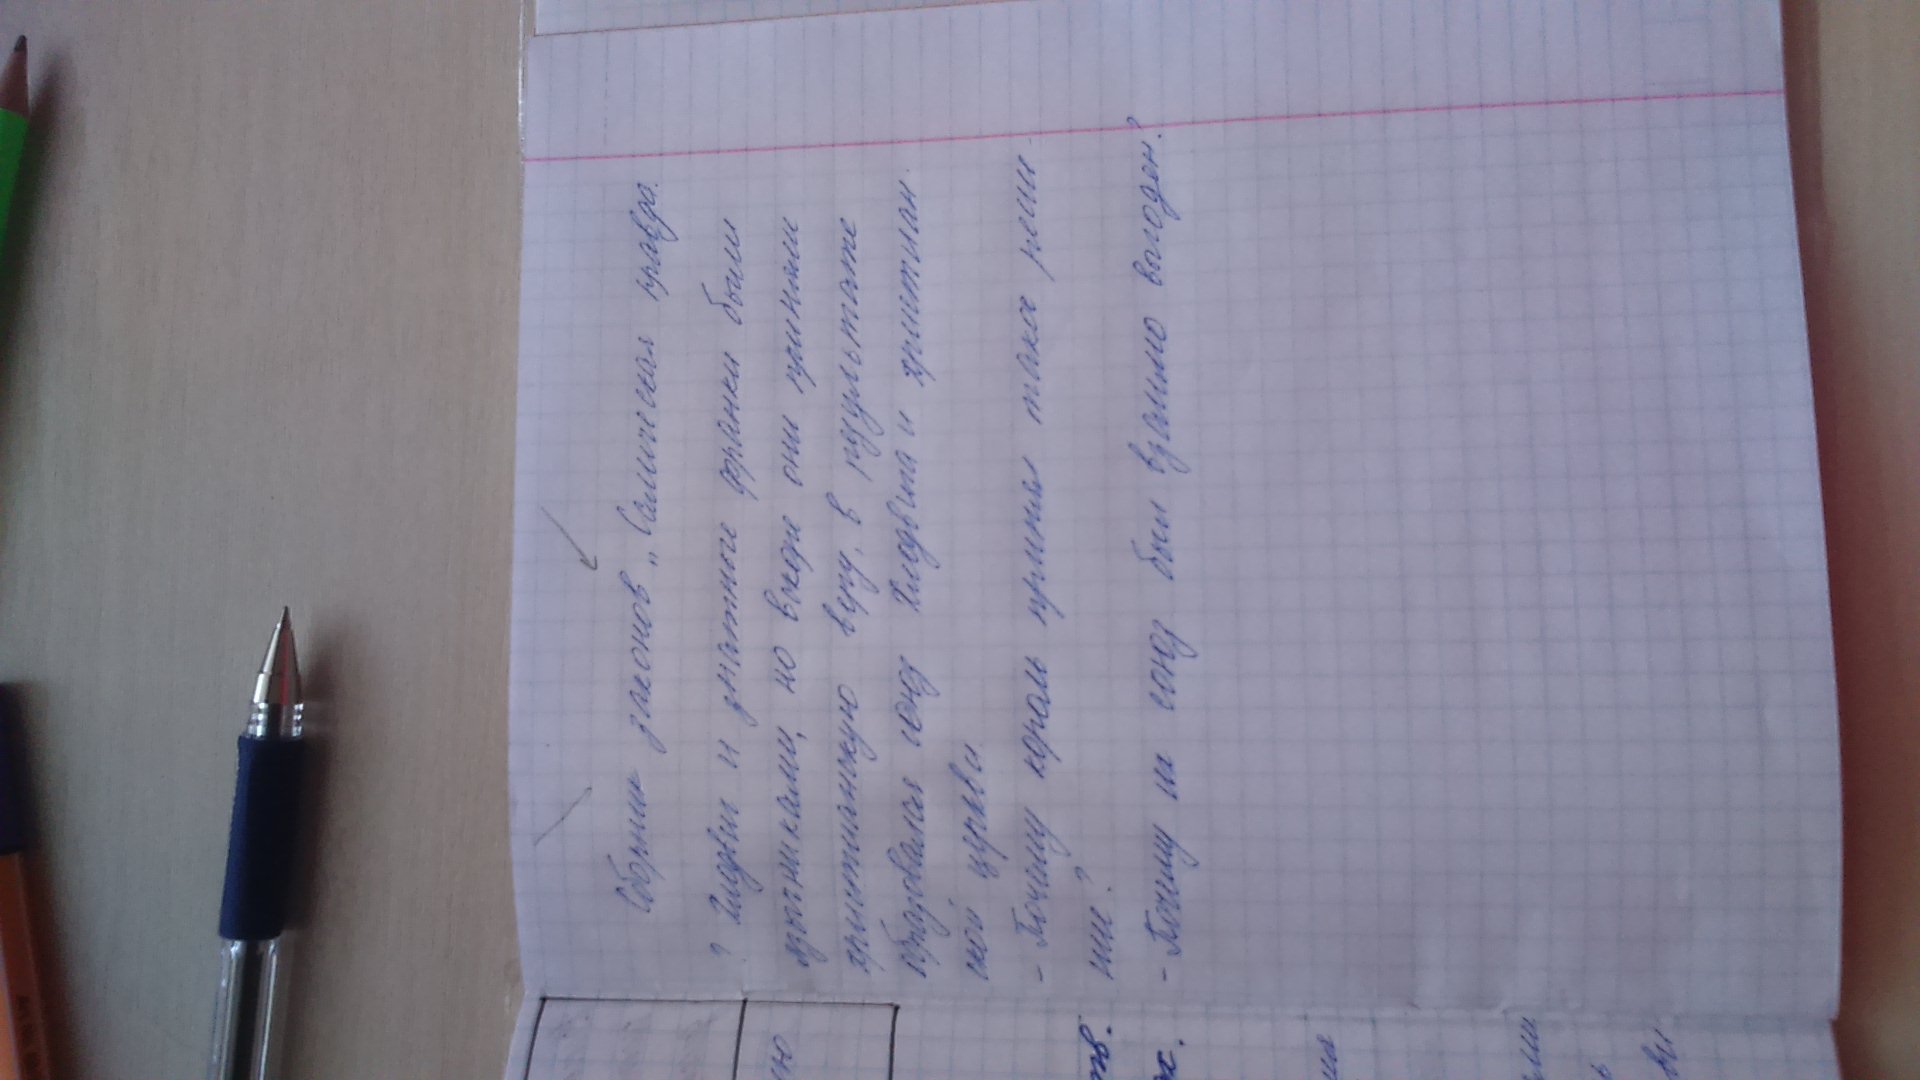 Сборник законов „Салическая правда.
? Хлодвиг и знатные франки были
язычниками, но вскоре они приняли
христианскую веру, в результате
образовался союз Хлодвига и христиан-
ской церкви.
- Почему король принял такое реше-
ние?
- Почему их союз был взаимно выгоден?
ю
тв.
х.
ия
ели
ь
вы